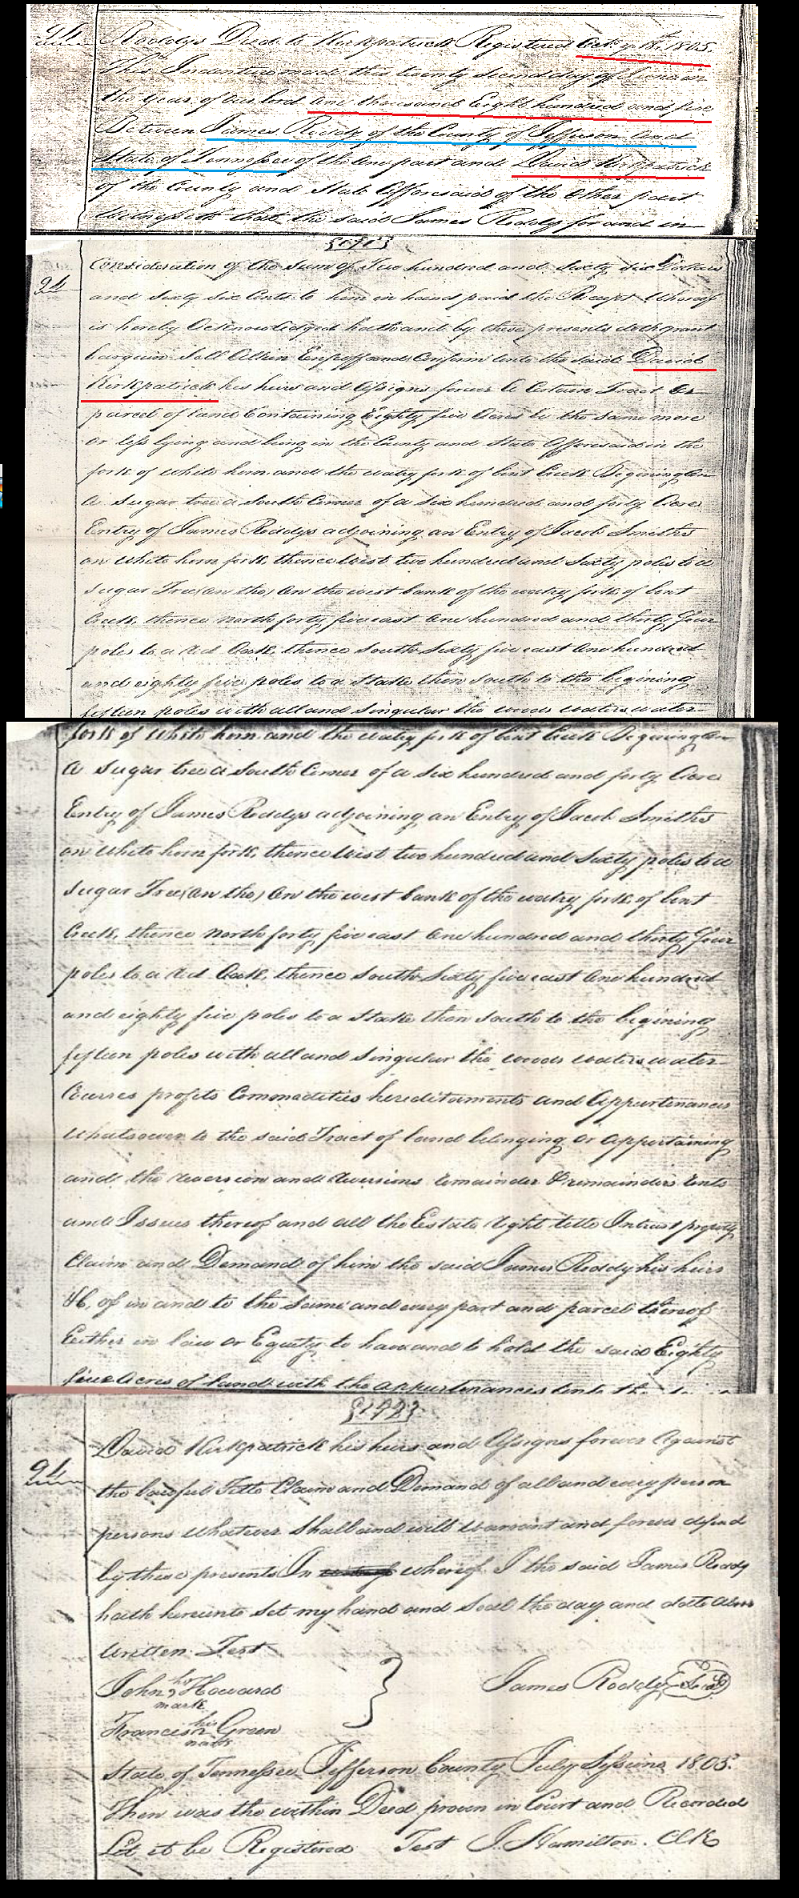 94 Roddys Deed to Kirkpatrick Registered Octr 18th 1805.
This Indenture made this twenty second day of June in
the year of our lord one thousand Eight hundred and five
Between James Roddy of the County of Jefferson and
State of Tennessee of the one part and David Kirkpatrick
of the County and State Afforesaid of the other part
Witnesseth that the said James Roddy for and in
94 Consideration of the sum of Two hundred and sixty six Dollars
and sixty six Cents to him in hand paid the Receipt Whereof
is hereby Acknowledged hath and by these presents doth grant
bargain Sell Alien Enfeoff and Confirm unto the said David
Kirkpatrick his heirs and Assigns forever A Certain Tract or
parcel of land Containing Eighty five Acres be the same more
or less lying and being in the County and State Afforesaid in the
fork of White horn and the watry fork of bent Creek Begining on
A sugar tree a South Corner of a six hundred and forty Acre
Entry of James Roddys adjoining an Entry of Jacob Smiths
on White horn fork, thence West two hundred and sixty poles to a
sugar Tree (on the) on the west bank of the watry fork of bent
Creek, thence north forty five east One hundred and thirty four
poles to a Red Oak, thence South Sixty five east One hundred
and eighty five poles to a Stake then South to the begining
fifteen poles with all and singular the woods waters water
fork of White horn and the watry fork of bent Creek Begining on
A sugar tree a South Corner of a six hundred and forty Acre
Entry of James Roddys adjoining an Entry of Jacob Smiths
on White horn fork, thence West two hundred and sixty poles to a
sugar Tree (on the) on the west bank of the watry fork of bent
Creek, thence north forty five east One hundred and thirty four
poles to a Red Oak, thence South Sixty five east One hundred
and eighty five poles to a Stake then South to the begining
fifteen poles with all and singular the woods waters water
Courses profits Commodities hereditaments and Appurtenances
Whatsoever to the said Tract of land belonging or appertaining
and the reversion and reversions remainder & remainders rents
and Issues thereof and all the Estate right title Intrust property
Claim and Demand of him the said James Roddy his heirs
&c, of in and to the same and every part and parcel thereof
Either in law or Equity to have and to hold the said Eighty
five Acres of land with the appurtenances unto the
94 David Kirkpatrick his heirs and Assigns forever Against
the lawful Title Claim and Demand of all and every person
persons Whatever Shall and will Warrant and forever defend
by these presents In whereof I the said James Roddy
hath hereunto Set my hand and Seal the day and date above
Written. Test
John his Howard
mark
James Roddy
Francis his Green
mark
State of Tennessee Jefferson County July Sessions 1805.
Then was the within Deed proven in Court and Recorded
Let it be Registered Test J. Hamilton. Clk